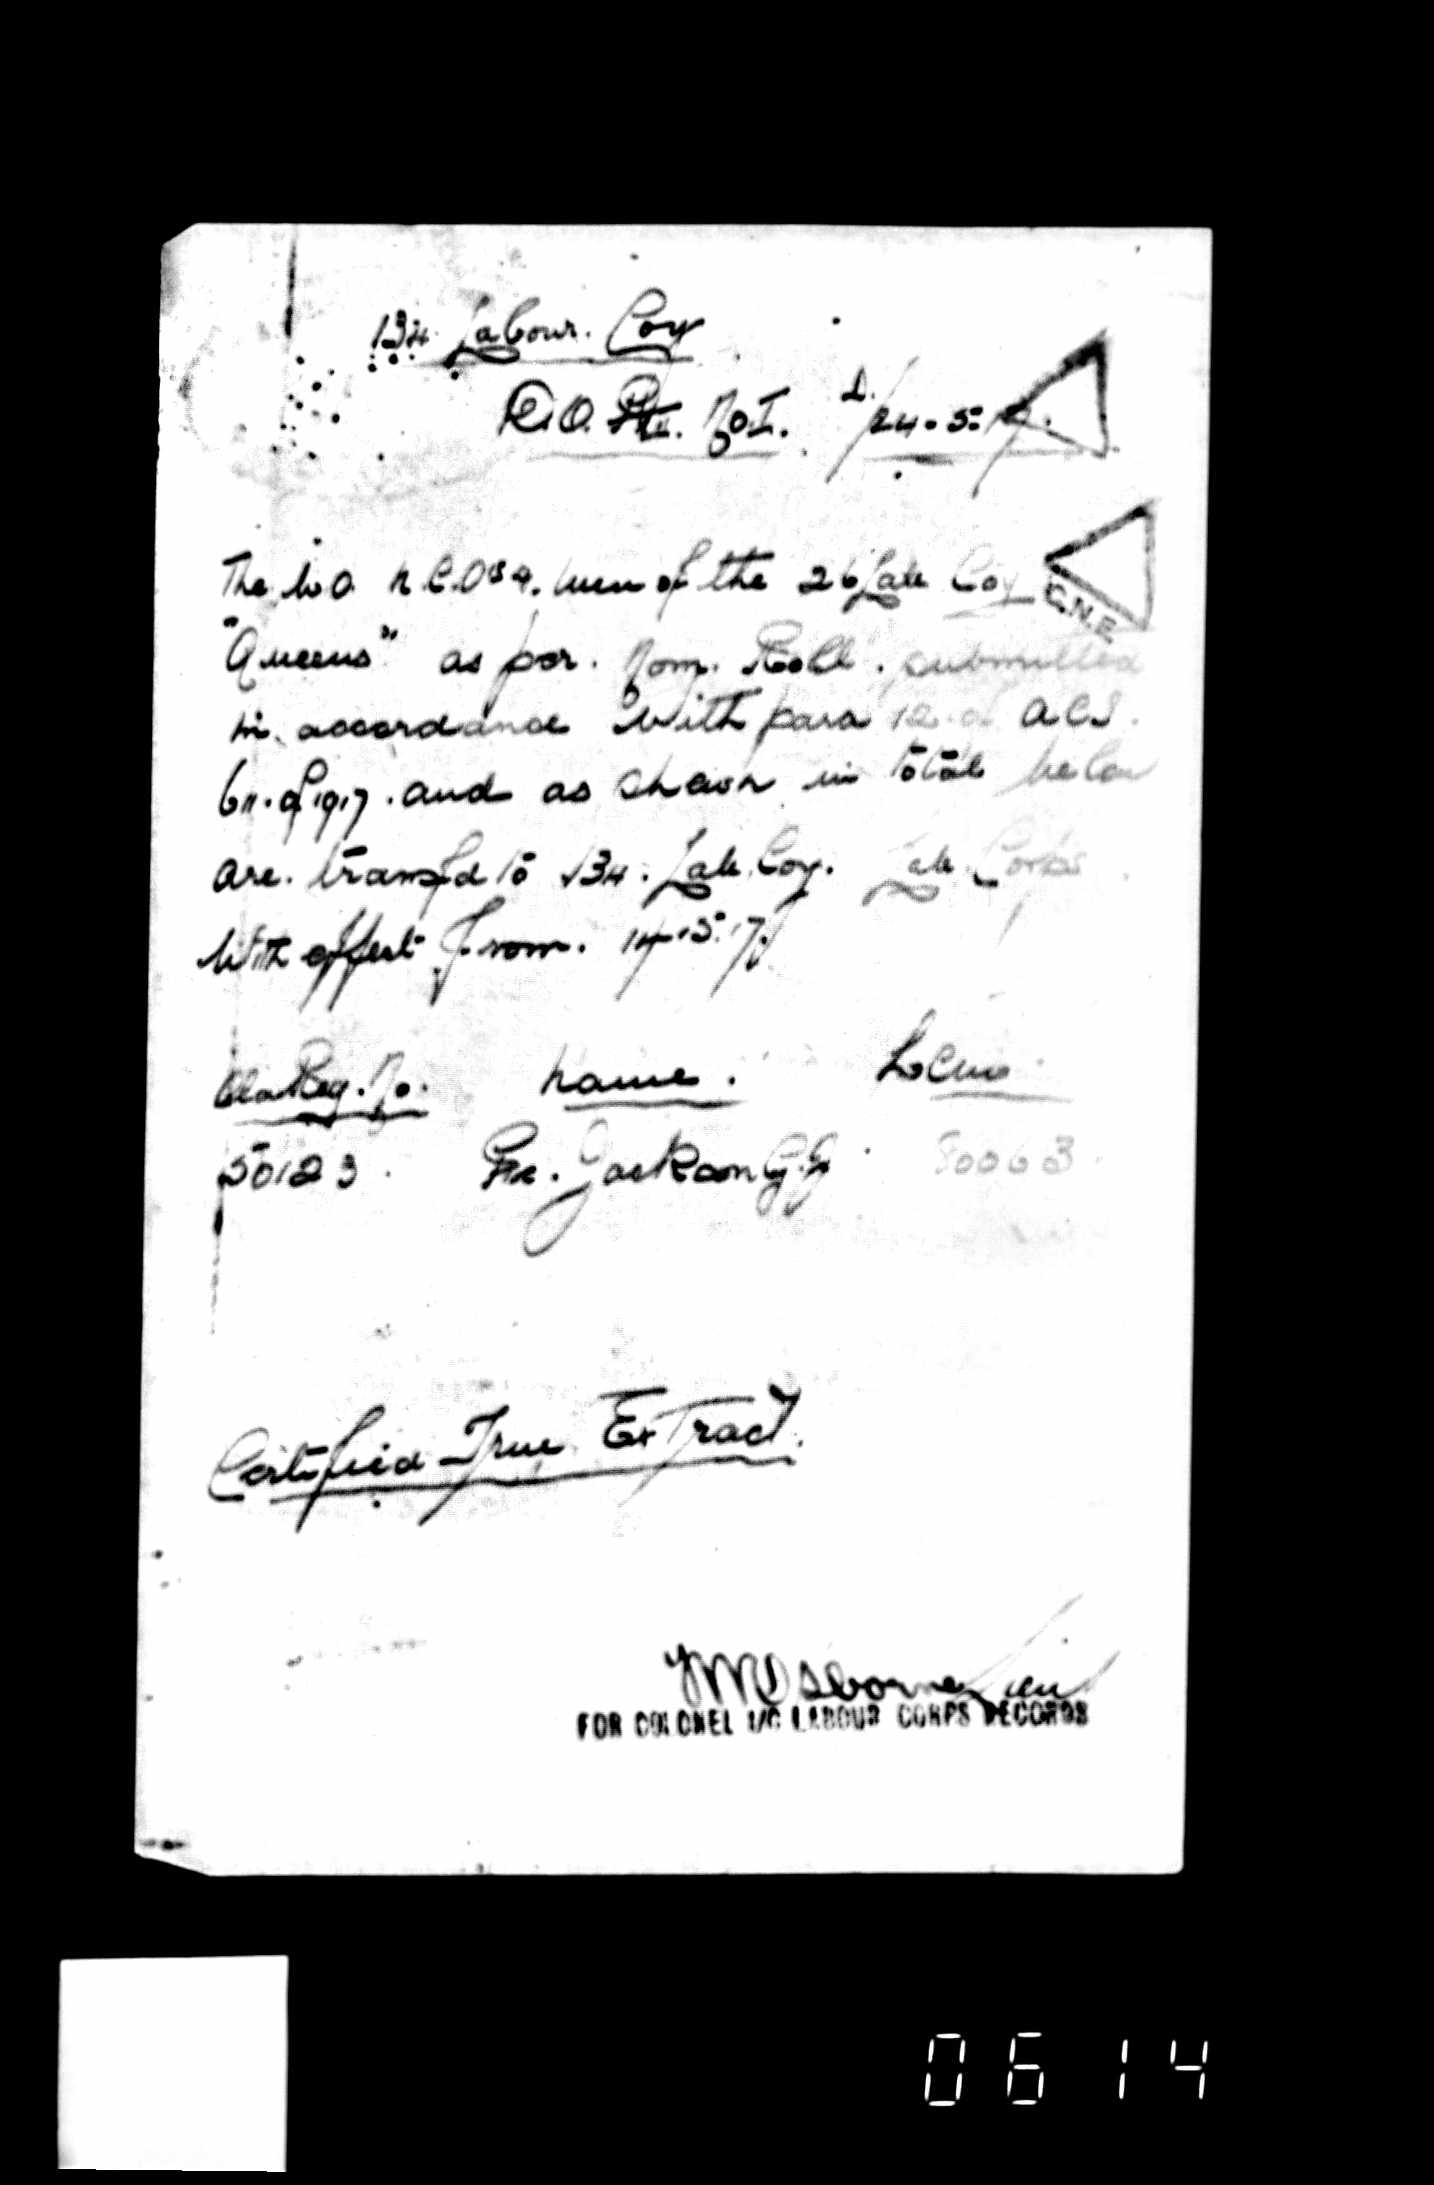 134. Labour. Coy
R.O. Pt II. No I. d/24.5.17.
The W.O. N.C.O's &. Men of the 26 Lab Coy
C.N.E.
"Queens" as per. Nom. Roll. submitted
in. accordance with para 12 of ACI.
611. of 1917. and as shewn in total below
are. transfd to 134. Lab. Coy. Lab Corps.
With effect from. 14.5.17.
Old Reg. No. Name. New
50123. Pte. Jackson G.J. 80063.
Certified True Extract.
Osborne Lieu
FOR COLONEL I/C LABOUR CORPS RECORDS
0614